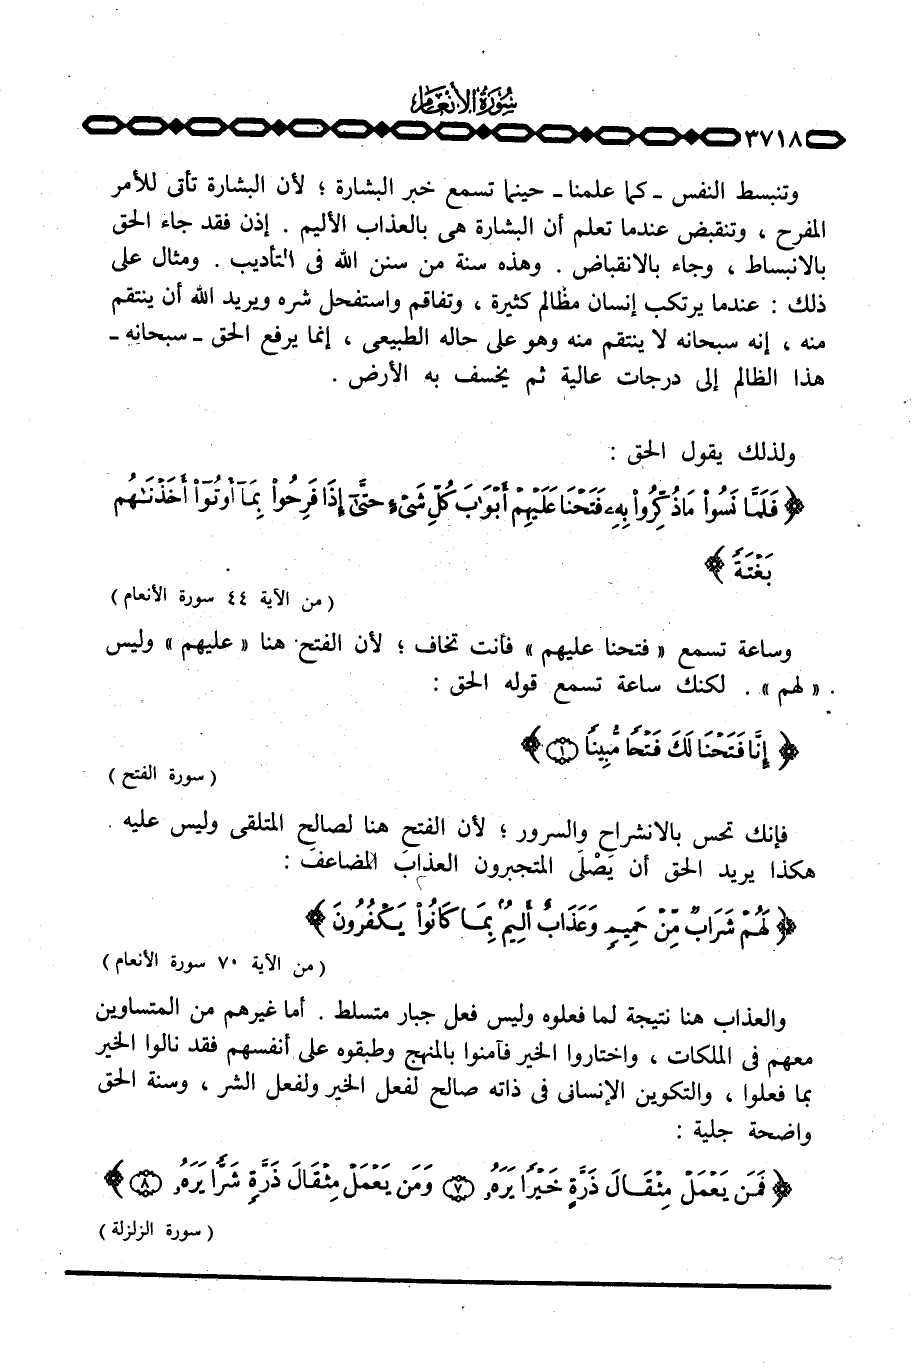 سورة الأنعام
٣٧١٨
وتنبسط النفس ـ كما علمنا ـ حينما تسمع خبر البشارة ؛ لأن البشارة تأتى للأمر
المفرح ، وتنقبض عندما تعلم أن البشارة هى بالعذاب الأليم . إذن فقد جاء الحق
بالانبساط ، وجاء بالانقباض . وهذه سنة من سنن الله فى التأديب . ومثال على
ذلك : عندما يرتكب إنسان مظالم كثيرة ، وتفاقم واستفحل شره ويريد الله أن ينتقم
منه ، إنه سبحانه لا ينتقم منه وهو على حاله الطبيعى ، إنما يرفع الحق ـ سبحانه ـ
هذا الظالم إلى درجات عالية ثم يخسف به الأرض .
ولذلك يقول الحق :
﴿ فَلَمَّا نَسُوا۟ مَا ذُكِّرُوا۟ بِهِۦ فَتَحْنَا عَلَيْهِمْ أَبْوَٰبَ كُلِّ شَىْءٍ حَتَّىٰٓ إِذَا فَرِحُوا۟ بِمَآ أُوتُوٓا۟ أَخَذْنَـٰهُم
بَغْتَةً ﴾
( من الآية ٤٤ سورة الأنعام )
وساعة تسمع « فتحنا عليهم » فأنت تخاف ؛ لأن الفتح هنا « عليهم » وليس
« لهم » . لكنك ساعة تسمع قوله الحق :
﴿ إِنَّا فَتَحْنَا لَكَ فَتْحًا مُّبِينًا ١ ﴾
( سورة الفتح )
فإنك تحس بالانشراح والسرور ؛ لأن الفتح هنا لصالح المتلقى وليس عليه .
هكذا يريد الحق أن يَصْلَى المتجبرون العذابَ المضاعفَ :
﴿ لَهُمْ شَرَابٌ مِّنْ حَمِيمٍ وَعَذَابٌ أَلِيمٌۢ بِمَا كَانُوا۟ يَكْفُرُونَ ﴾
( من الآية ٧٠ سورة الأنعام )
والعذاب هنا نتيجة لما فعلوه وليس فعل جبار متسلط . أما غيرهم من المتساوين
معهم فى الملكات ، واختاروا الخير فآمنوا بالمنهج وطبقوه على أنفسهم فقد نالوا الخير
بما فعلوا ، والتكوين الإنسانى فى ذاته صالح لفعل الخير ولفعل الشر ، وسنة الحق
واضحة جلية :
﴿ فَمَن يَعْمَلْ مِثْقَالَ ذَرَّةٍ خَيْرًا يَرَهُۥ ٧ وَمَن يَعْمَلْ مِثْقَالَ ذَرَّةٍ شَرًّا يَرَهُۥ ٨ ﴾
( سورة الزلزلة )